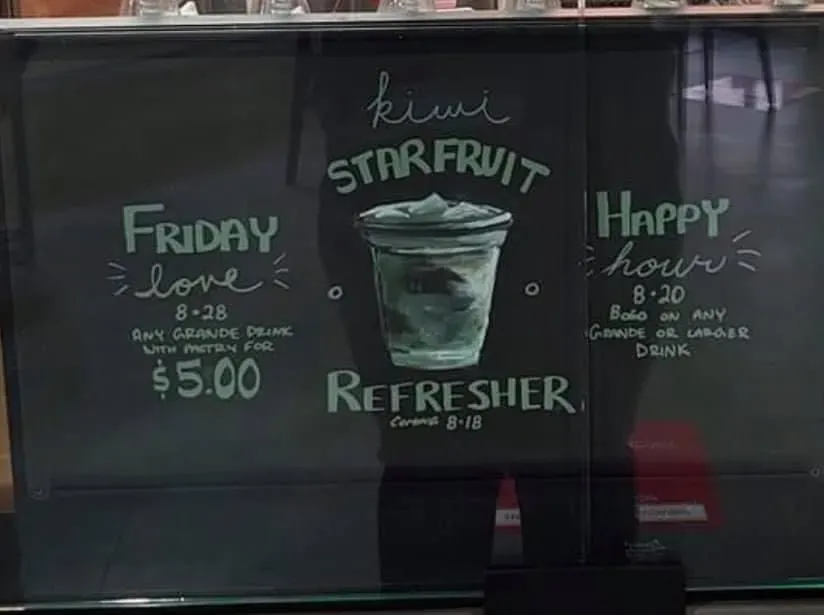 kiwi
STARFRUIT
REFRESHER
Coming 8•18
FRIDAY
love
8•28
ANY GRANDE DRINK
WITH PASTRY FOR
$5.00
HAPPY
hour
8•20
BOGO ON ANY
GRANDE OR LARGER
DRINK